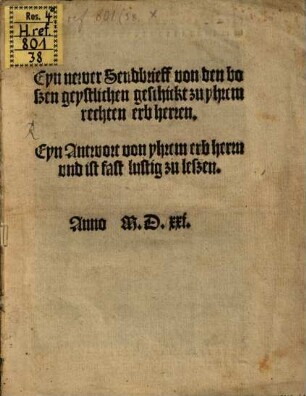 Res. 4°
H. ref.
801
38
Eyn newer Sendbrieff von den bo
szen geystlichen geschickt zu yhrem
rechten erb herren.
Eyn Antwort von yhrem erb herrn
vnd ist fast lustig zu leszen.
Anno M. D. xxi.